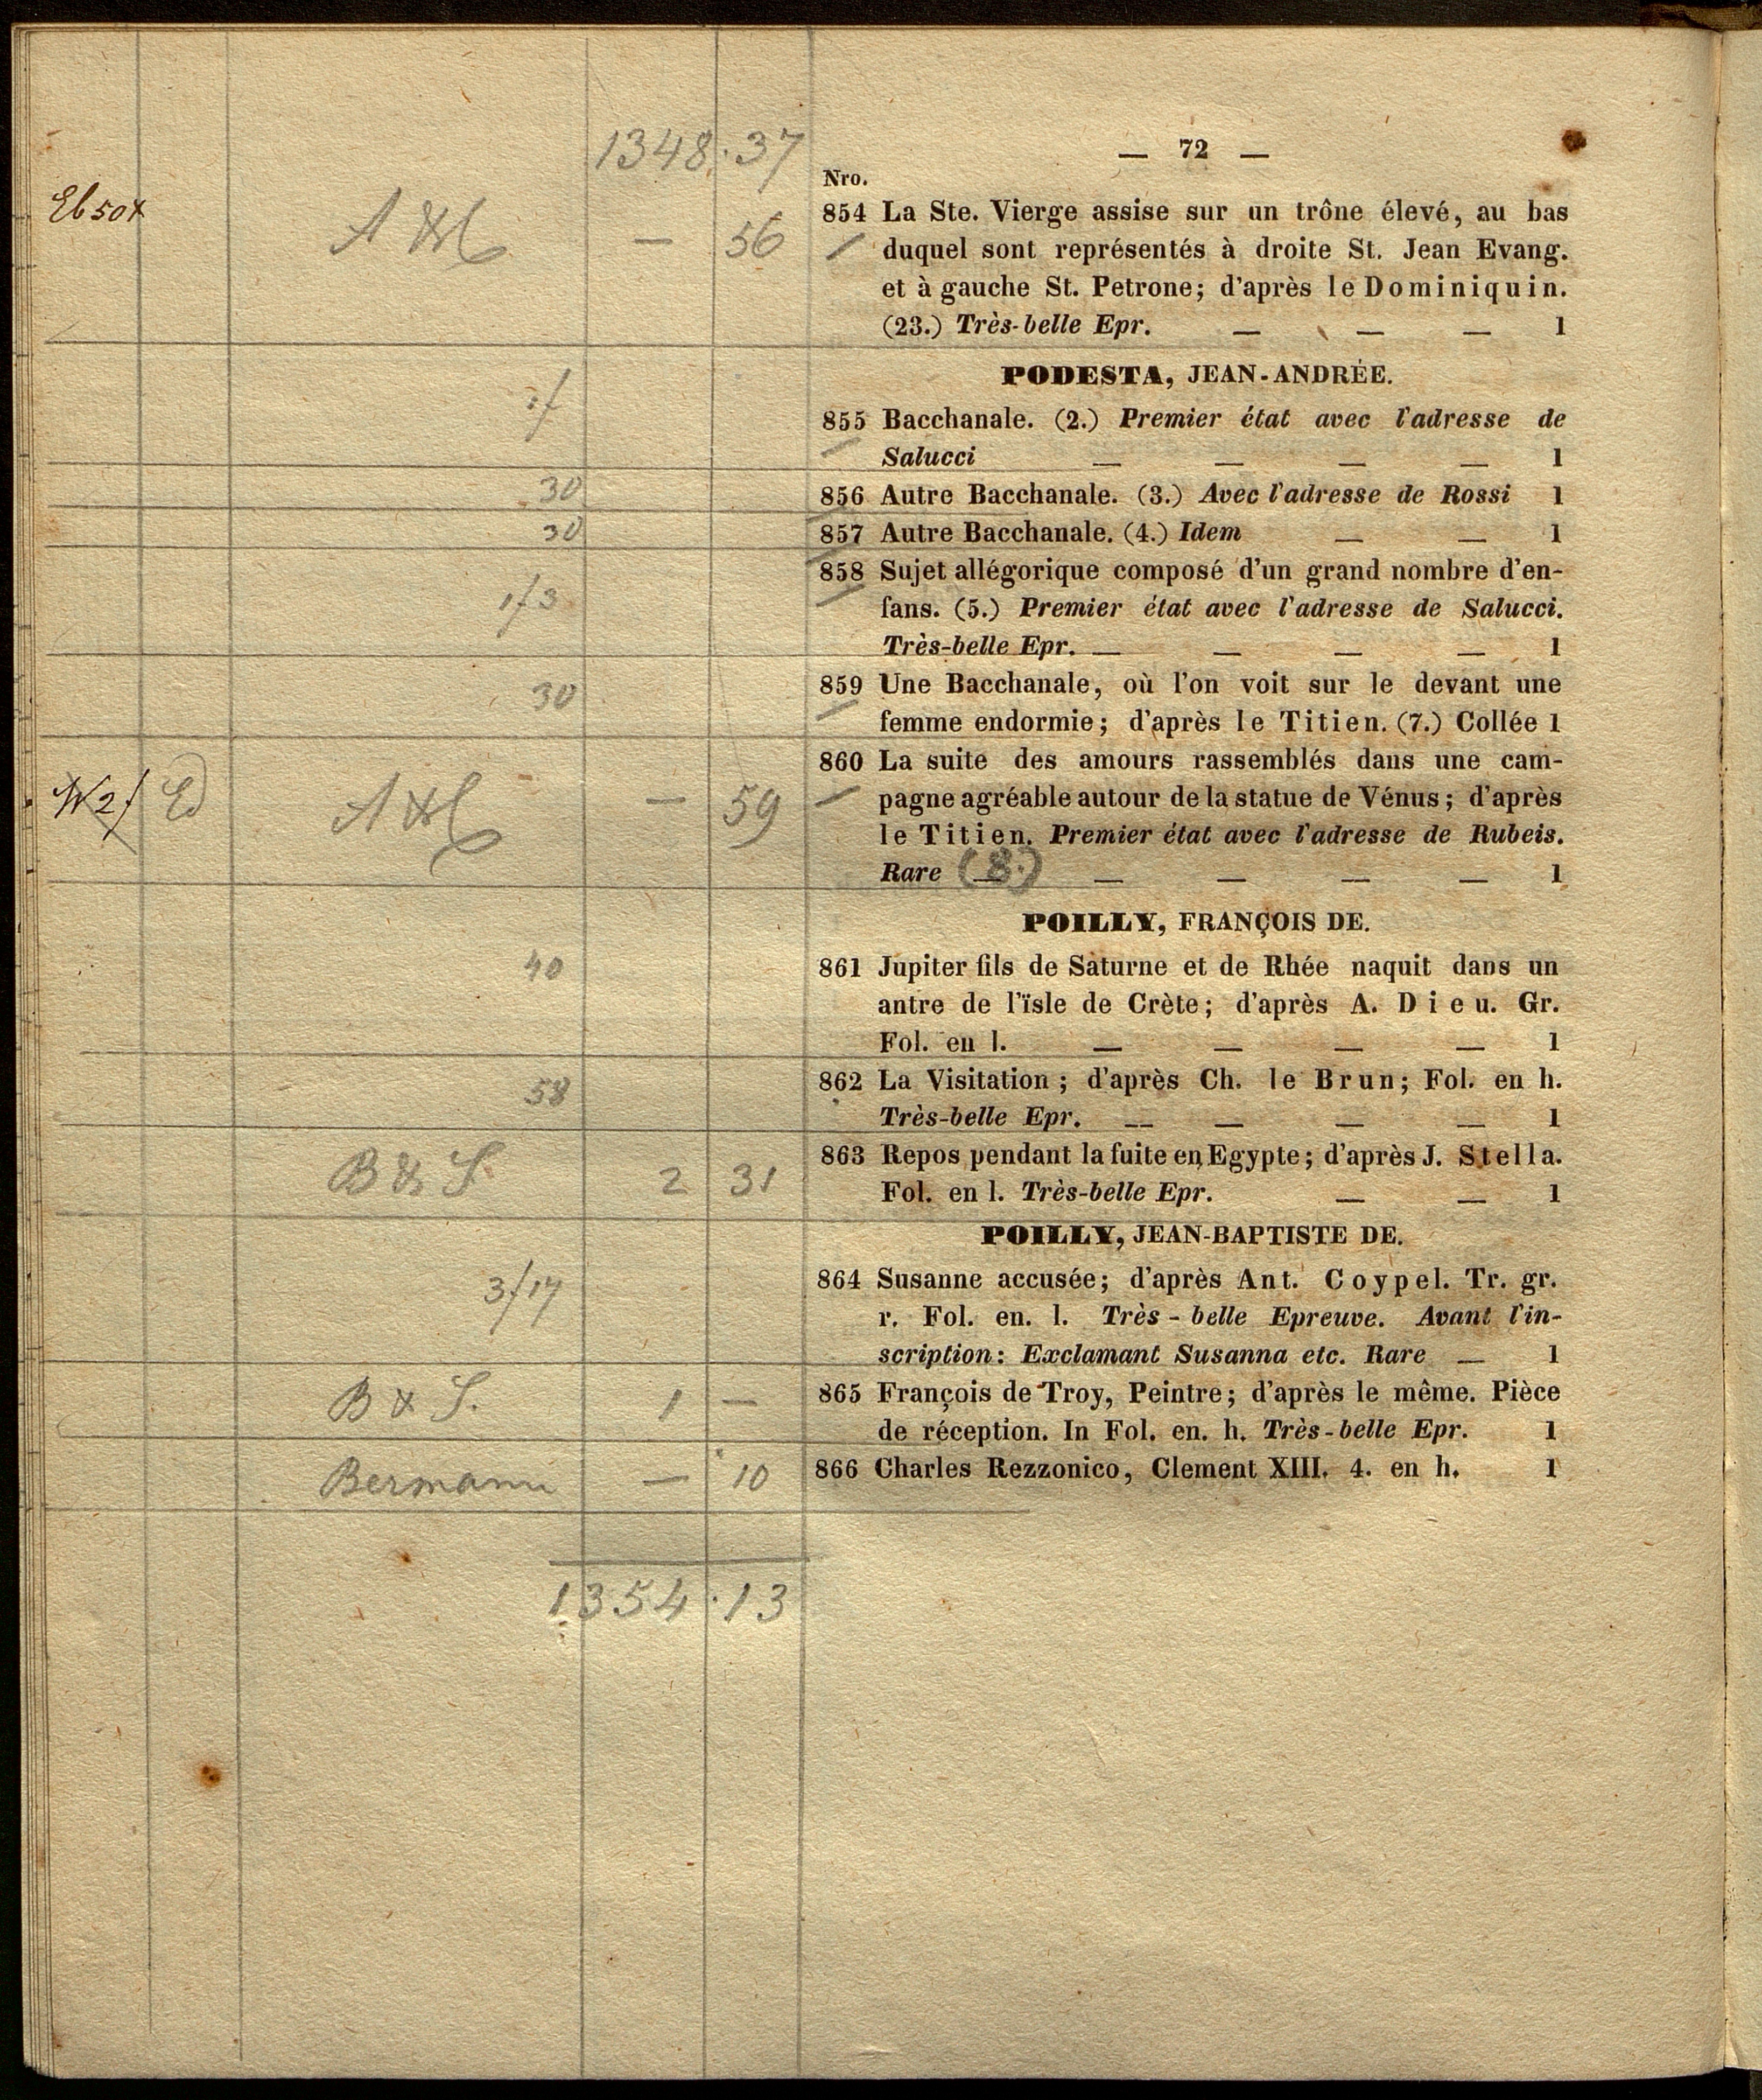 1348 · 37
— 72 —
Nro.
Eb 50x A & — 56
854 La Ste. Vierge assise sur un trône élevé, au bas
duquel sont représentés à droite St. Jean Evang.
et à gauche St. Petrone; d'après le Dominiquin.
(23.) Très-belle Epr. — — — 1
PODESTA, JEAN-ANDRÉE.
855 Bacchanale. (2.) Premier état avec l'adresse de
Salucci — — — — 1
30
856 Autre Bacchanale. (3.) Avec l'adresse de Rossi 1
30
857 Autre Bacchanale. (4.) Idem — — 1
1f3
858 Sujet allégorique composé d'un grand nombre d'en-
fans. (5.) Premier état avec l'adresse de Salucci.
Très-belle Epr. — — — — 1
30
859 Une Bacchanale, où l'on voit sur le devant une
femme endormie; d'après le Titien. (7.) Collée 1
W2f Ed A & — 59
860 La suite des amours rassemblés dans une cam-
pagne agréable autour de la statue de Vénus; d'après
le Titien. Premier état avec l'adresse de Rubeis.
Rare (8.) — — — — 1
POILLY, FRANÇOIS DE.
40
861 Jupiter fils de Saturne et de Rhée naquit dans un
antre de l'ïsle de Crète; d'après A. Dieu. Gr.
Fol. en l. — — — — 1
58
862 La Visitation; d'après Ch. le Brun; Fol. en h.
Très-belle Epr. — — — — 1
B & S 2 31
863 Repos pendant la fuite en Egypte; d'après J. Stella.
Fol. en l. Très-belle Epr. — — 1
POILLY, JEAN-BAPTISTE DE.
3f17
864 Susanne accusée; d'après Ant. Coypel. Tr. gr.
r. Fol. en. l. Très-belle Epreuve. Avant l'in-
scription: Exclamant Susanna etc. Rare — 1
B & S. 1 —
865 François de Troy, Peintre; d'après le même. Pièce
de réception. In Fol. en. h. Très-belle Epr. 1
Bermann — 10
866 Charles Rezzonico, Clement XIII. 4. en h. 1
1354 · 13